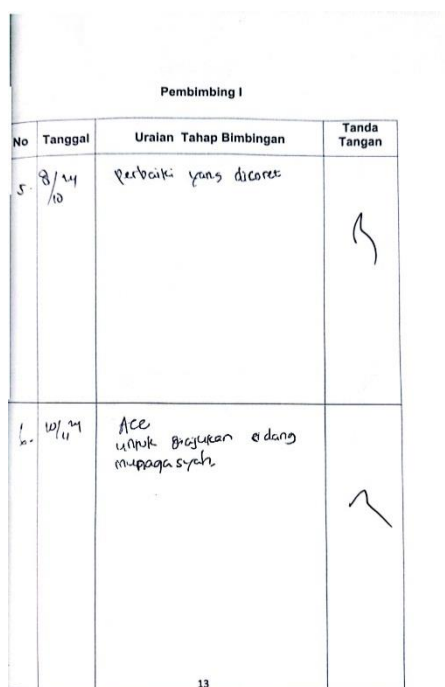 Pembimbing I
No Tanggal Uraian Tahap Bimbingan Tanda Tangan
5. 8/10 24 Perbaiki yang dicoret
6. 10/11 24 Acc
untuk sidang
munaqasyah
13